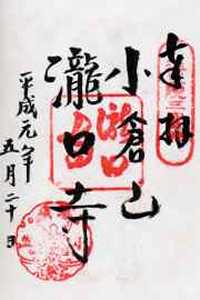 奉拝
小倉山
瀧口寺
平成元年
五月二十日